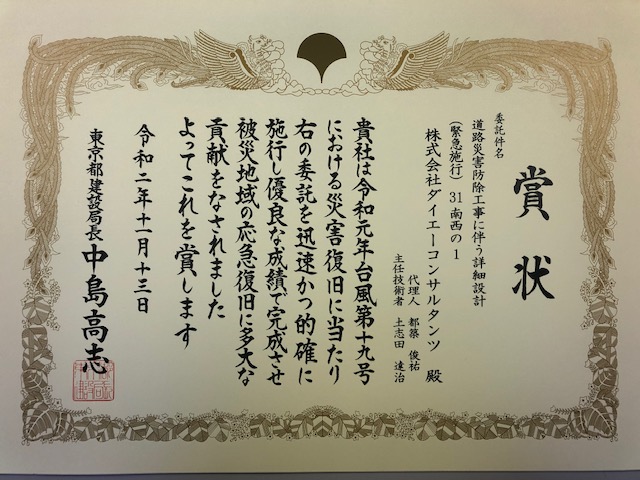 賞状
委託件名
道路災害防除工事に伴う詳細設計
(緊急施行)31南西の1
株式会社ダイエーコンサルタンツ 殿
代理人 都築 俊祐
主任技術者 土志田 達治
貴社は令和元年台風第十九号
における災害復旧に当たり
右の委託を迅速かつ的確に
施行し優良な成績で完成させ
被災地域の応急復旧に多大な
貢献をなされました
よってこれを賞します
令和二年十一月十三日
東京都建設局長 中島高志